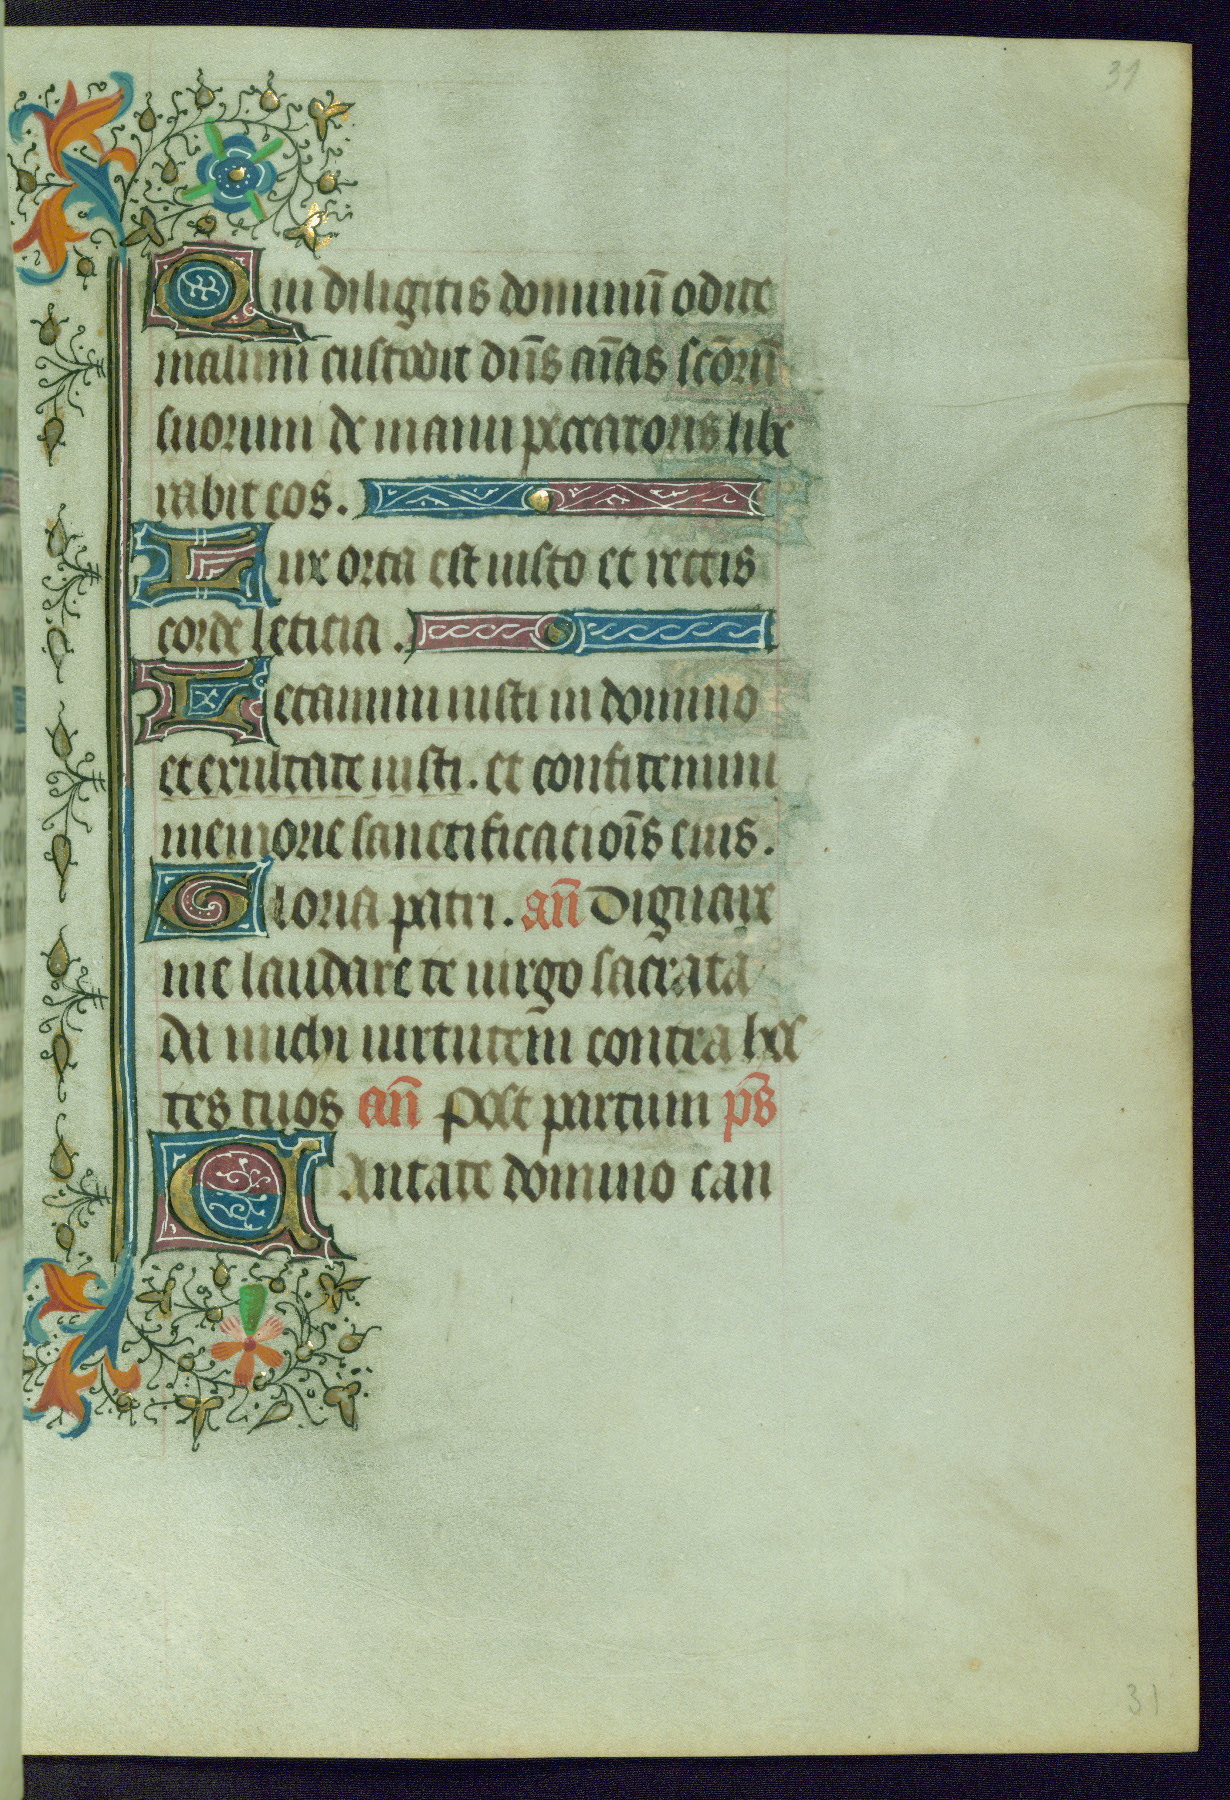 31
Qui diligitis dominū odite
malum custodit dn̄s aīas scōrū
suorum de manu peccatoris libe
rabit eos.
Lux orta est iusto et rectis
corde leticia.
Letamini iusti in domino
et exultate iusti. et confitemini
memorie sanctificatiōis eius.
Gloria patri. an̄ Dignare
me laudare te uirgo sacrata
da michi uirtutem contra hos
tes tuos an̄ Post partum p̄s
Cantate domino can
31